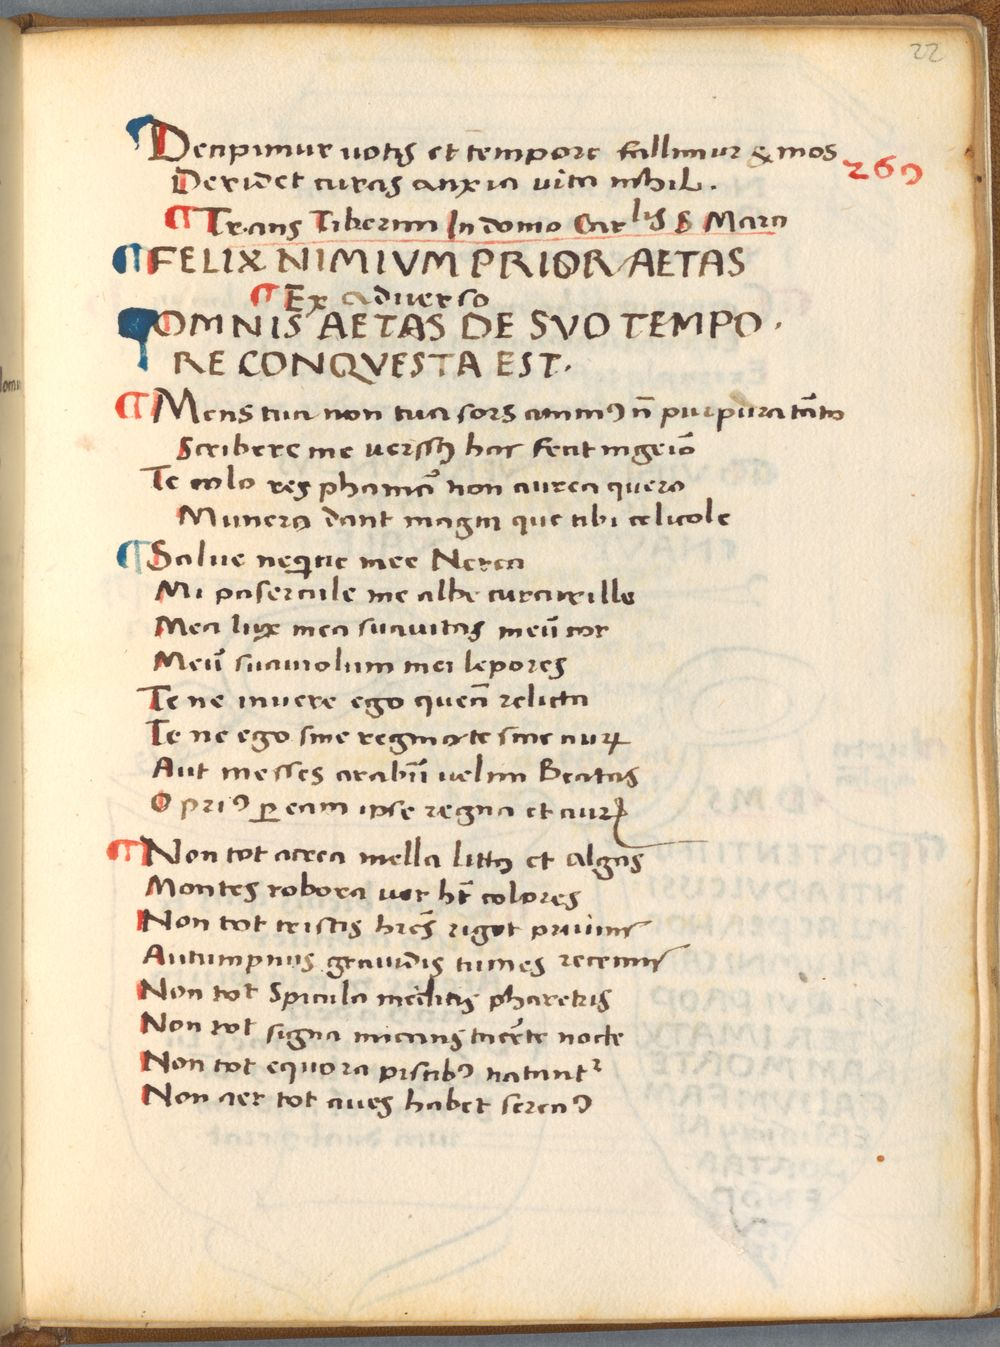 22
Decipimur votis et tempore fallimur & mos
269
Deridet curas anxia vita nihil.
¶ Trans Tiberim In domo Carlis S Marci
¶ FELIX NIMIVM PRIOR AETAS
¶ Ex adverso
¶ OMNIS AETAS DE SVO TEMPO.
RE CONQVESTA EST.
¶ Mens tua non tua sors animꝰ nō purpura tāto
Scribere me versꝰ hac fecit ingeīo
Te colo res non aurea quero
Munera dant magni que tibi celicole
¶ Salue neqtie mee Nerea
Mi paserculle me albe turturille
Mea lux mea suavitas meū cor
Meū suauiolum mei lepores
Te ne invere ego queā relicta
Te ne ego sine regna te sine auꝝ
Aut messes arabūm velim Beatas
O priꝰ ꝑeam ipse regna et auꝝ
¶ Non tot acrea mella littꝰ et Algas
Montes robora ver hēt colores
Non tot tristis riget pruinis
Autumpnus gravidis tumes racemis
Non tot Spicula meditis pharetris
Non tot signa micans nocte
Non tot equora piscibꝰ natantʳ
Non aer tot aues habet serenꝰ